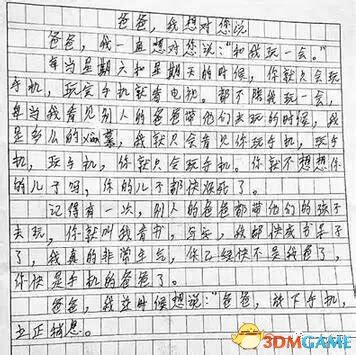 爸爸，我想对您说
爸爸，我一直想对您说："和我玩一会。"
每当星期六和星期天的时候，你就只会玩
手机，玩完手机就看电视。都不陪我玩一会，
每当我看见别人的爸爸带他们去玩的时候，我
是多么的xian慕，我就只会看见你玩手机，玩手
机，玩手机，你就只会玩手机。你就不想想你
的儿子吗，你的儿子都快疯了。
记得有一次，别人的爸爸都带他们的孩子
去玩，你就叫我看书，写字，我都快成书呆子
了，我真的非常生气，你已经快不是我爸了，
你快是手机的爸爸了。
爸爸，我这时候想说："爸爸，放下手机，
3DMGAME